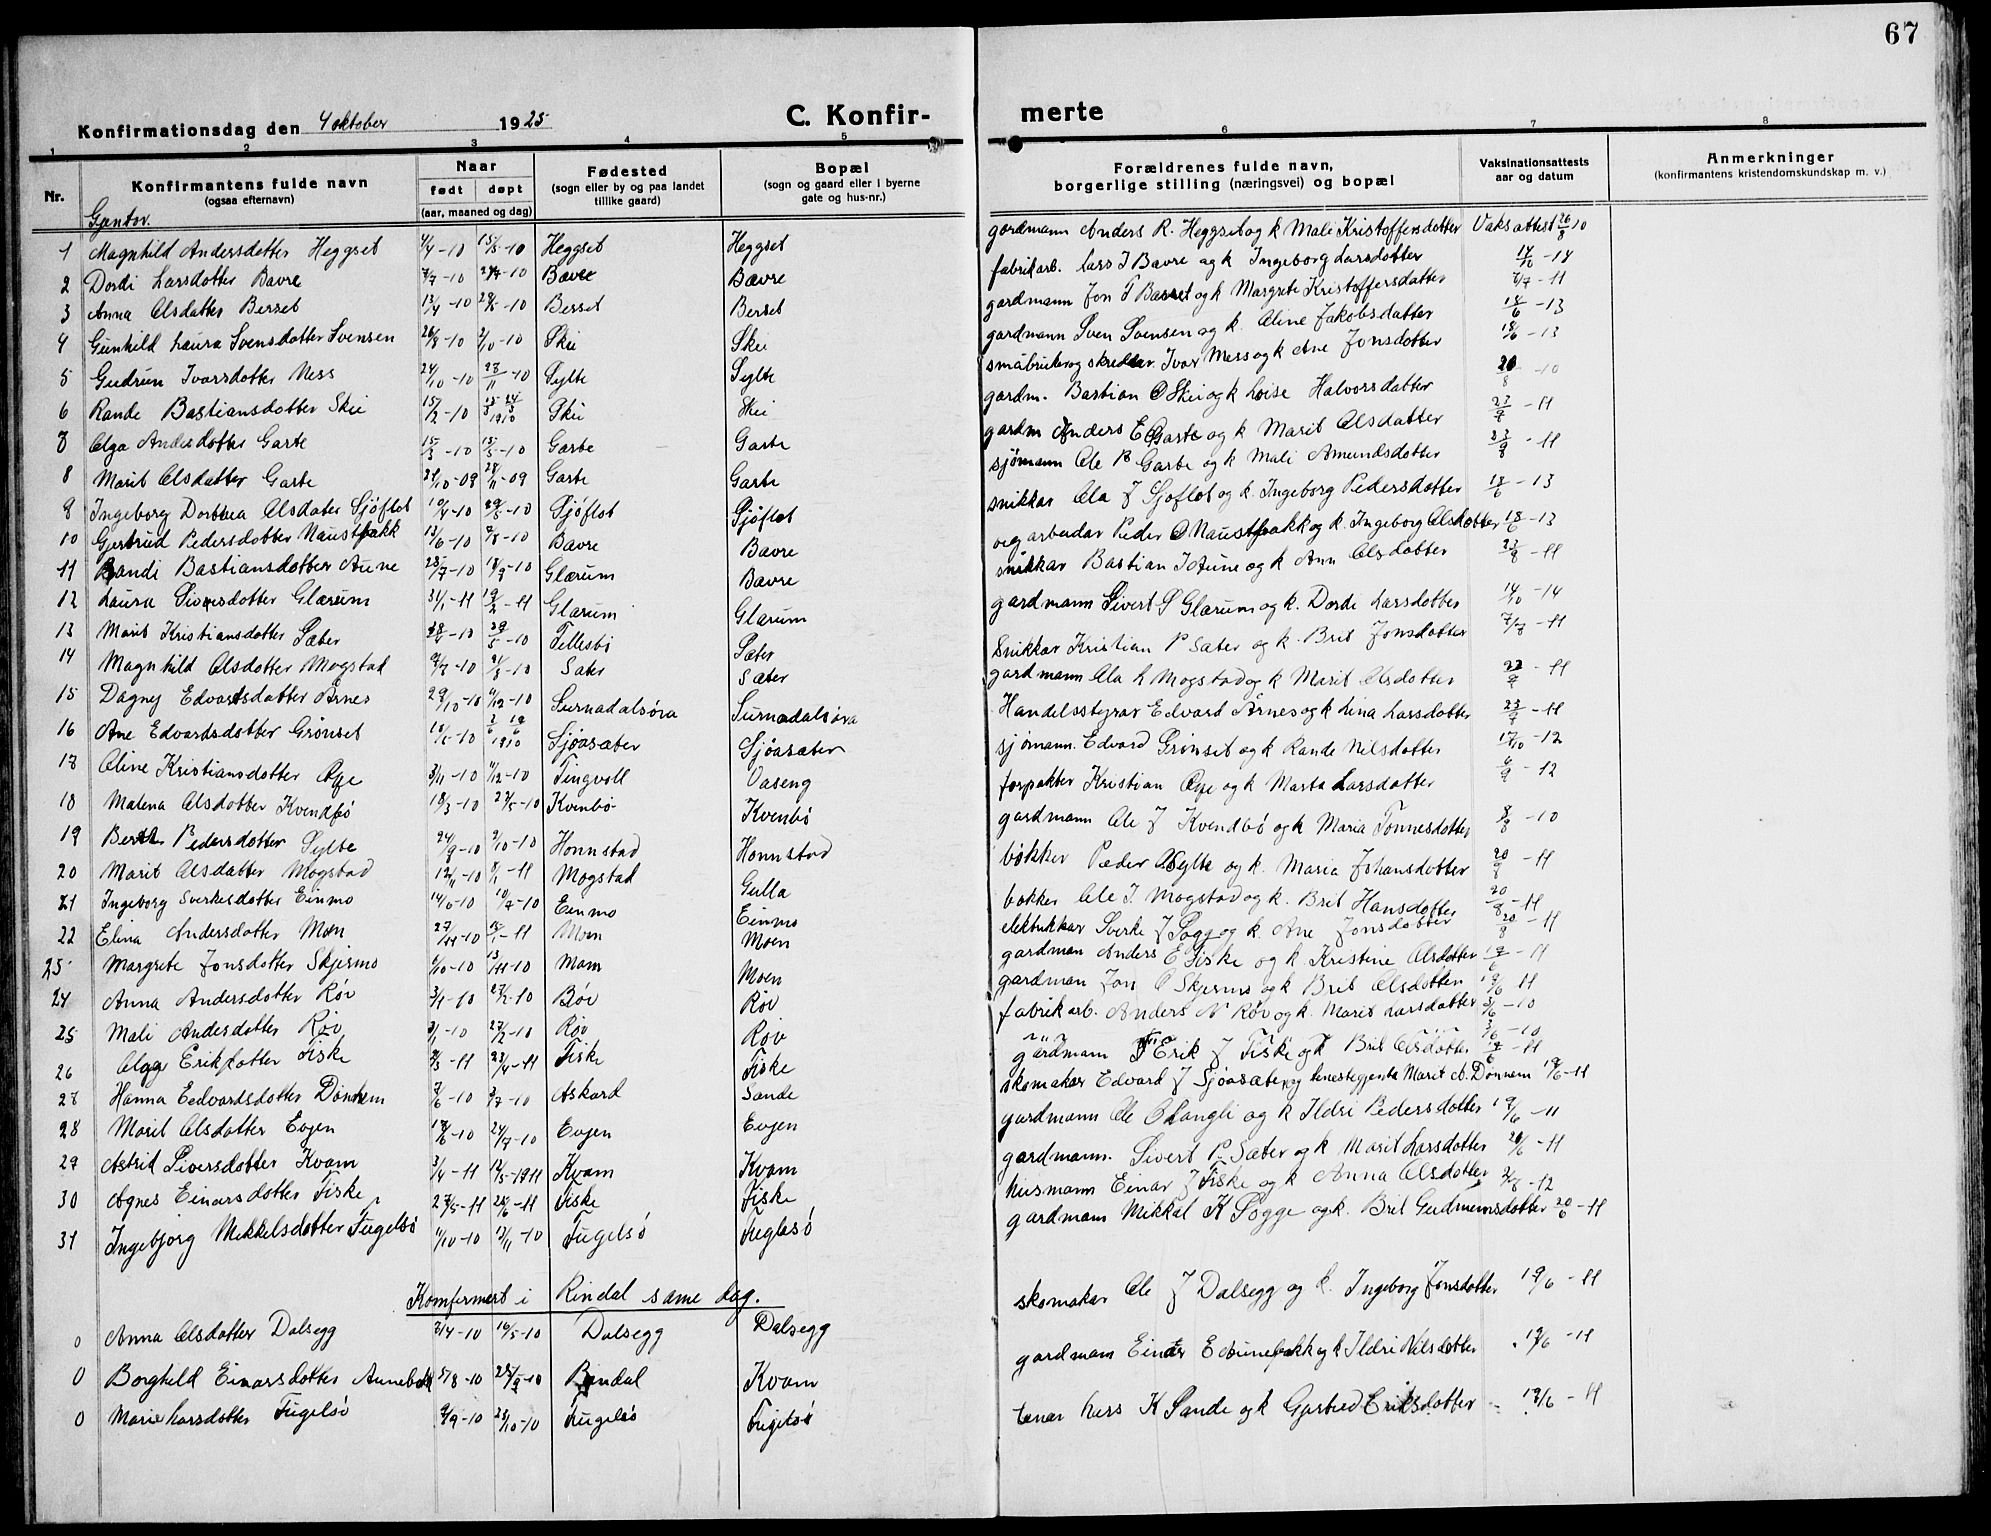 67
Konfirmationsdag den 4 oktober 1925 C. Konfirmerte
1 2 3 4 5 6 7 8
Nr. Konfirmantens fulde navn (ogsaa efternavn) Naar født døpt (aar, maaned og dag) Fødested (sogn eller by og paa landet tillike gaard) Bopæl (sogn og gaard eller i byerne gate og hus-nr.) Forældrenes fulde navn, borgerlige stilling (næringsvei) og bopæl Vaksinationsattests aar og datum Anmerkninger (konfirmantens kristendomskundskap m. v.)
Gjentor.
1 Magnhild Andersdotter Heggset 4/4-10 15/5-10 Heggset Heggset gardmann Anders R. Heggset og k Mali Kristoffersdotter Vaksattest 26/8 10
2 Dordi Larsdotter Bævre 7/7-10 Bævre Bævre fabrikarb. Lars J Bævre og k Ingeborg Larsdotter 14/10-14
3 Anna Olsdatter Berset 13/4-10 29/5-10 Berset Berset gardmann Jon T og k Margrete Kristoffersdatter -11
4 Gunhild Laura Svensdotter Svensen 26/8-10 2/10-10 Skei Skei gardmann Sven Svensen og k. Aline Jakobsdatter 18/6-13
5 Gudrun Ivarsdotter Ness 24/10-10 23/11-10 Sylte Sylte småbruker og skreddar Ivar Ness og k Ane Jonsdotter 18/6-13
6 Rande Bastiansdotter Skei 15/2-10 1910 Skei Skei gardm. Bastian O Skei og k Loise Halvorsdatter 20/8-10
7 Olga Andersdotter Garte 15/3-10 15/5-10 Garte Garte gardm Anders E Garte og k Marit Olsdatter 23/9-11
8 Marit Olsdatter Garte -09 28/11-09 Garte Garte sjømann Ole P Garte og k Mali Amundsdotter 23/9-11
9 Ingeborg Dorthea Olsdater Sjøflot 10/4-10 29/5-10 Sjøflot Sjøflot snikkar Ola J Sjøflot og k. Ingeborg Pedersdotter 18/6-13
10 Gjertrud Pedersdotter Naustbakk 13/6-10 7/8-10 Bævre Bævre vegarbeidar Peder O Naustbakk og k. Ingeborg Olsdotter 18/6-13
11 Randi Bastiansdotter Aune 25/7-10 18/9-10 Glærum Bævre snikkar Bastian J Aune og k Ann Olsdotter 23/9-11
12 Laura Siversdotter Glærum 31/1-11 19/2-11 Glærum Glærum gardmann Sivert S Glærum og k. Dordi Larsdotter 14/10-14
13 Marit Kristiansdotter Sæter -10 29/5-10 Tellesbø Sæter Snikkar Kristian P Sæter og k. Brit Jonsdotter -11
14 Magnhild Olsdotter Mogstad -10 21/8-10 Sæter Sæter gardmann Ola L Mogstad og k Marit Olsdotter -11
15 Dagny Edvardsdatter Årnes 29/10-10 4/12-10 Surnadalsøra Surnadalsøra Handelsstyrar Edvard Årnes og k Lina Larsdotter 23/9-11
16 Ane Edvardsdotter Grønset -10 1910 Sjøasæter Sjøasæter sjømann. Edvard Grønset og k Rande Nilsdotter 17/10-12
17 Oline Kristiansdotter Øye 3/11-10 4/12-10 Tingvoll Vaseng forpakter Kristian Øye og k Marta Larsdotter 6/9-12
18 Malena Olsdotter Kvendbø 18/3-10 -10 Kvenbø Kvenbø gardmann Ole J Kvendbø og k Maria Tonnesdotter 8/8-10
19 Berit Pedersdotter Sylte 24/8-10 2/10-10 Honnstad Honnstad bøkker Peder Sylte og k. Maria Johansdotter 20/8-11
20 Marit Olsdatter Mogstad 12/11-10 8/1-11 Mogstad Gulla bøkker Ole J. Mogstad og k. Brit Hansdotter 20/8-11
21 Ingeborg Sverkesdotter Einmo 14/6-10 10/7-10 Einmo Einmo Sverke J Sogge og k. Ane Jonsdotter 20/8-11
22 Elina Andersdotter Moen 27/11-10 -11 Moen Moen gardman Anders E Fiske og k Kristine Olsdotter 19/6-11
23 Margrete Jonsdotter Skjermo -10 13/11-10 Moen Moen gardman Jon O Skjermo og k Brit Olsdotter 19/6 11
24 Anna Andersdotter Røv 3/1-10 27/2-10 Røv Røv fabrikarb. Anders N Røv og k. Marit Larsdatter 3/6-10
25 Mali Andersdotter Røv 3/1-10 27/2-10 Røv Røv " " 3/6-10
26 Olga Eriksdotter Fiske -11 23/4-11 Fiske Fiske gardmann Erik J Fiske og k Brit Olsdotter 19/6-11
27 Hanna Edvardsdotter Dønnem 7/6-10 3/7-10 Askard Sande skomakar Edvard J Sjøasæter og tenestegjenta Marit A. Dønnem 19/6-11
28 Marit Olsdatter Evjen -10 24/7-10 Evjen Evjen gardmann Ole O Langli og k Ildri Pedersdotter 19/6-11
29 Astrid Siversdotter Kvam 3/4-11 -1911 Kvam Kvam gardmann. Sivert P. Sæter og k Marit Larsdotter -11
30 Agnes Einarsdotter Fiske 27/5-11 25/6-11 Fiske Fiske husmann Einar J Fiske og k Anna Olsdotter -12
31 Ingebjørg Mikkelsdotter Fugelsø -10 13/11-10 Fugelsø Fuglesø gardmann Mikkal K Sogge og k. Brit Gudmunsdotter 20/6-11
Komfirmert i Rindal same dag.
0 Anna Olsdatter Dalsegg -10 16/5-10 Dalsegg Dalsegg skomakar Ole J Dalsegg og k. Ingeborg Jonsdotter 19/6-11
0 Borghild Einarsdotter 5/8-10 25/9-10 Rindal Kvam gardmann Einar E og k Ildri Nilsdotter 19/6-11
0 Marie Larsdotter Fugelsø 9/9-10 23/10-10 Fugelsø Fugelsø tenar Lars K Sande og k Gjertrud Eriksdotter 19/6-11